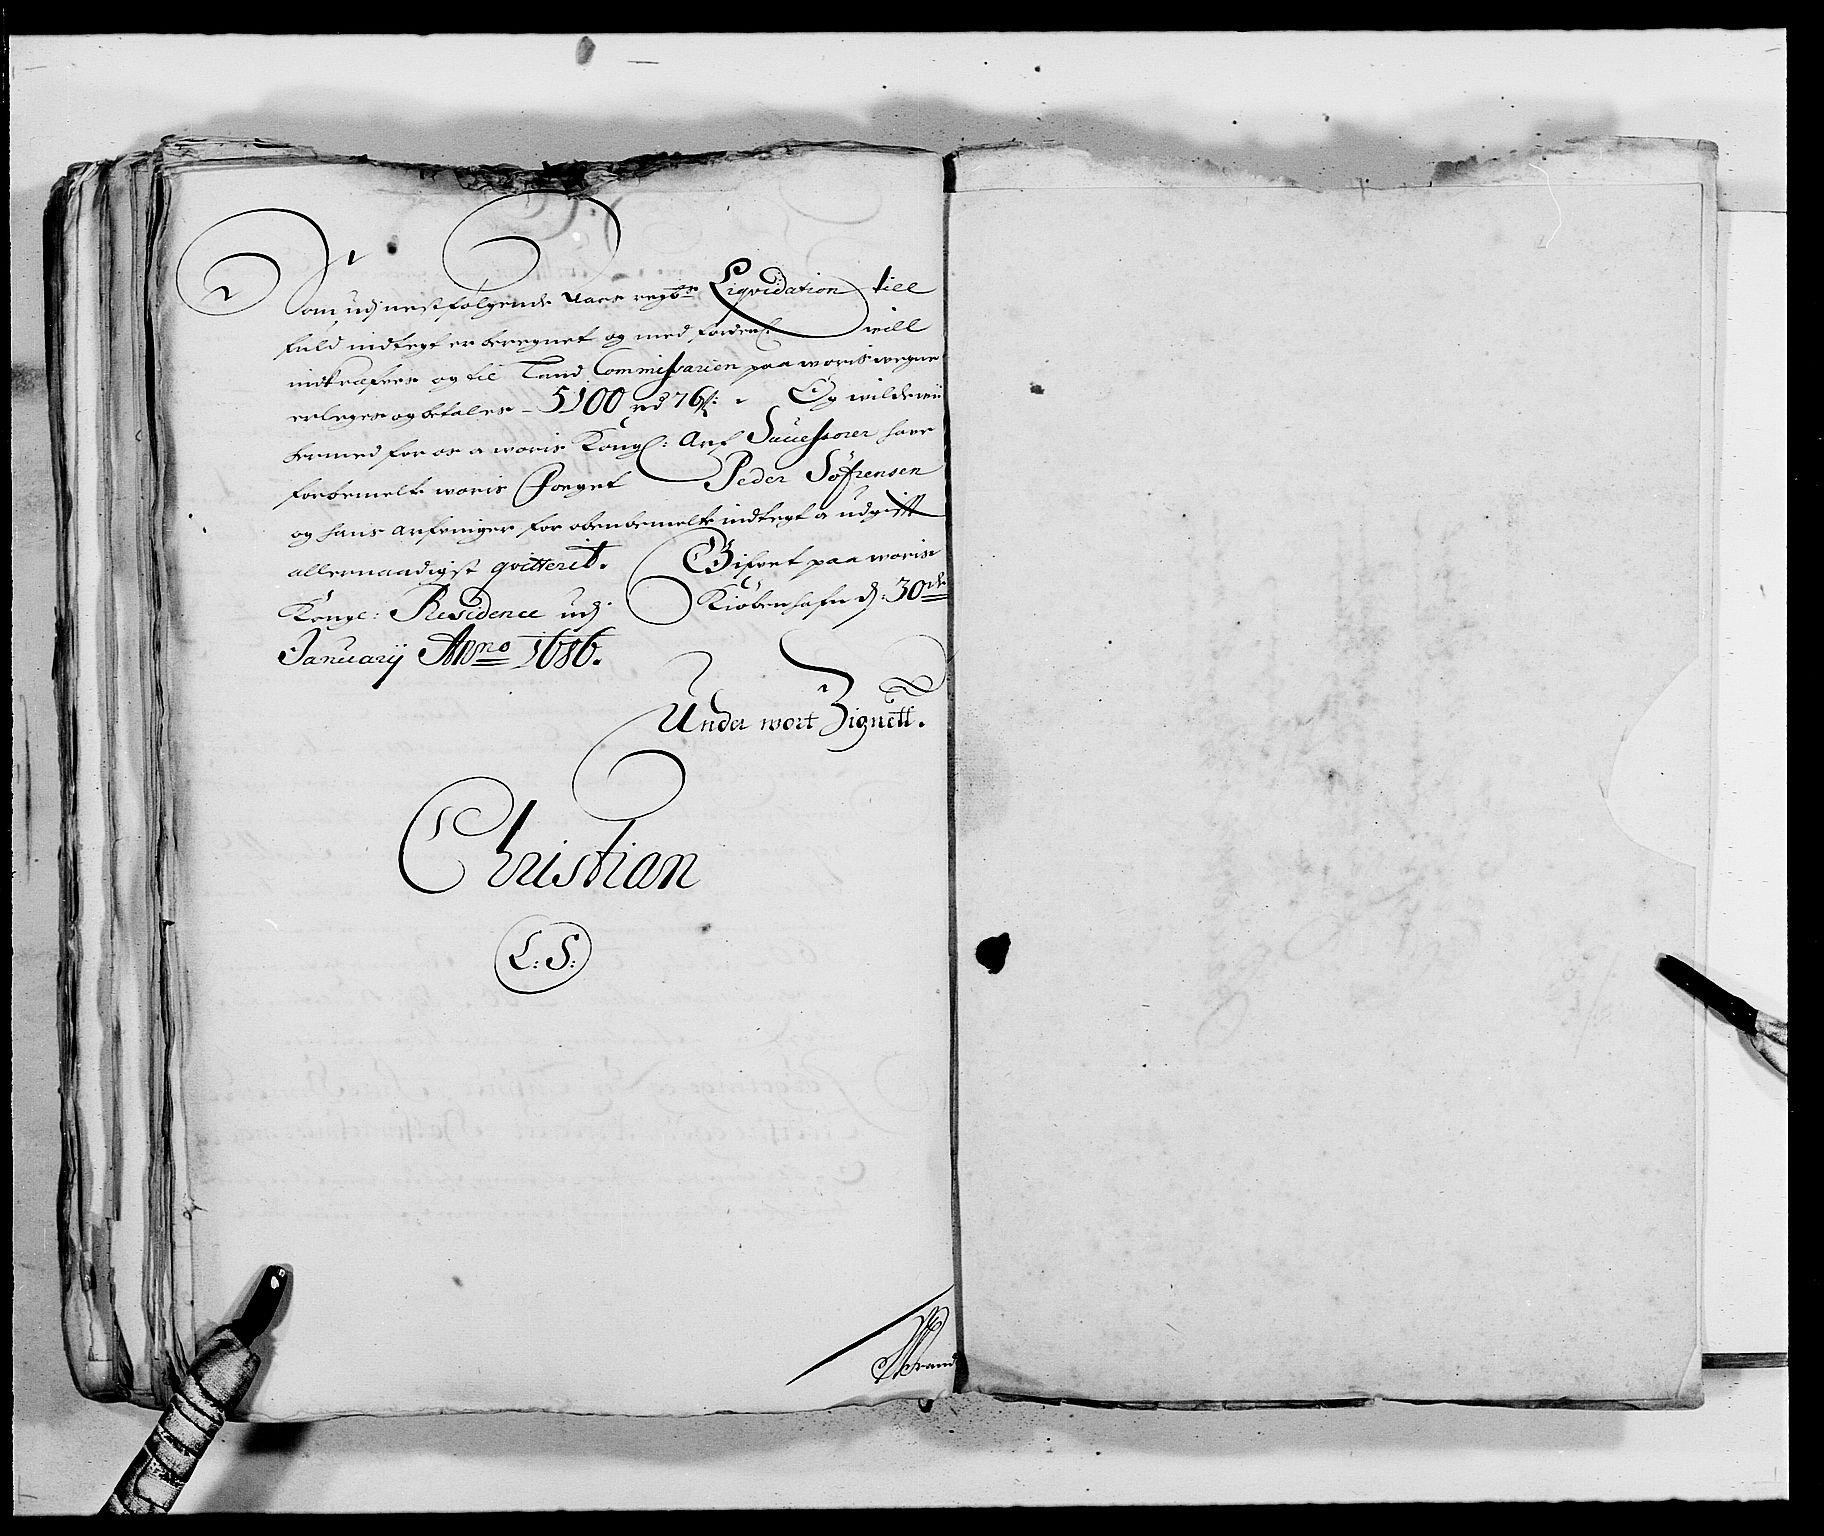 Som udj nestfølgende Aars regb: Liqvidation till
fuld indtegt er beregnet og med forder: will
indkræfves og til Land Commissarien paa woris wegne
erleges og betales - 5100 rd 76 s: Og wilde wii
hermed for os a woris Kongl: Arf Successorer hafve
forbemelte woris Foget Peder Søfrensen
og hans arfvinger for obenbemelte indtegt a udgifft
allernaadigst qvitterit. Gifvet paa woris
Kongl: Residence udj Kiøbenhafn d: 30de
Januarij Anno 1686.
Under wort Zignett.
Christian
L: S: